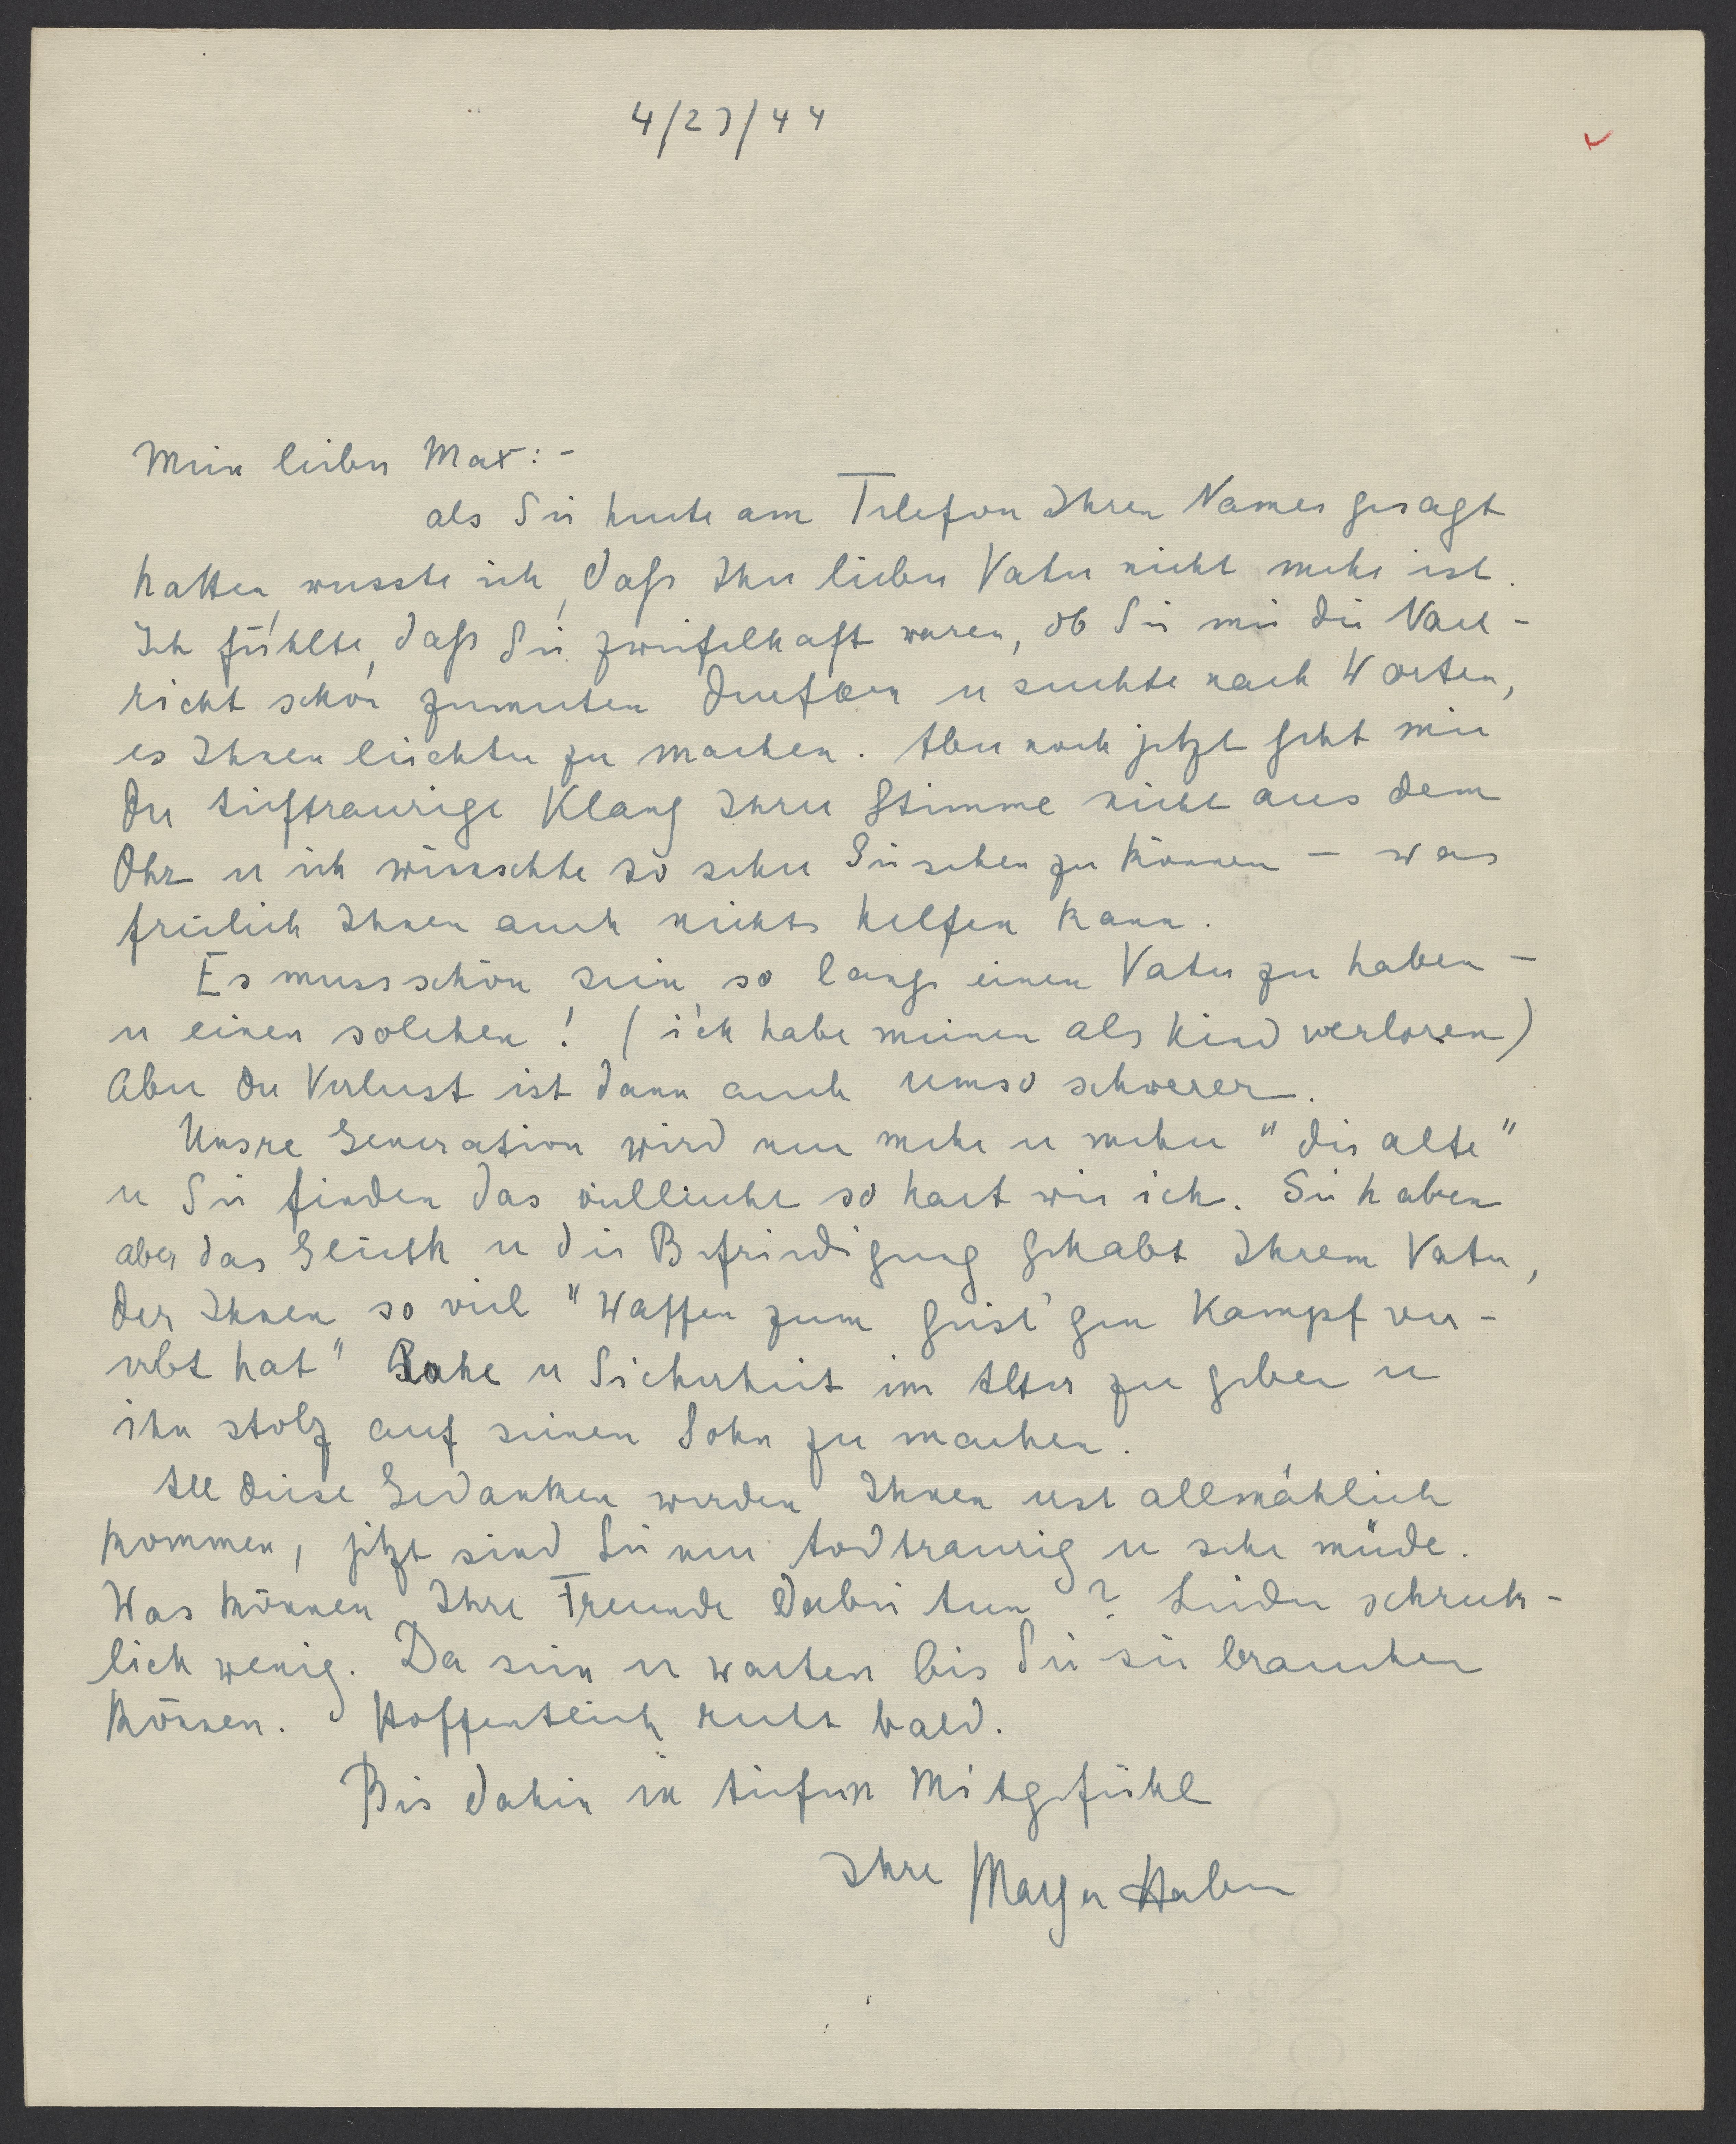 4/23/44
Mein lieber Max:-
als Sie heute am Telefon Ihren Namen gesagt
hatten, wusste ich, dass Ihr lieber Vater nicht mehr ist.
Ich fühlte, dass Sie zweifelhaft waren, ob Sie mir die Nach-
richt schon zumuten durften u suchte nach Worten,
es Ihnen leichter zu machen. Aber noch jetzt geht mir
der tieftraurige Klang Ihrer Stimme nicht aus dem
Ohr u ich wünschte so sehr Sie sehen zu können - was
freilich Ihnen auch nichts helfen kann.
Es muss schön sein, so lange einen Vater zu haben -
u einen solchen! (ich habe meinen als Kind verloren)
Aber der Verlust ist dann auch umso schwerer.
Unsre Generation wird nun mehr u mehr "die alte"
u Sie finden das vielleicht so hart wie ich. Sie haben
aber das Glück u die Befriedigung gehabt Ihrem Vater,
der Ihnen so viel "Waffen zum geist'gen Kampf ver-
erbt hat" Ruhe u Sicherheit im Alter zu geben u
ihn stolz auf seinen Sohn zu machen.
All diese Gedanken werden Ihnen erst allmählich
kommen, jetzt sind Sie nur todtraurig u sehr müde.
Was können Ihre Freunde dabei tun? Leider schreck-
lich wenig. Da sein u warten bis Sie sie brauchen
können. Hoffentlich recht bald.
Bis dahin in tiefem Mitgefühl
Ihre